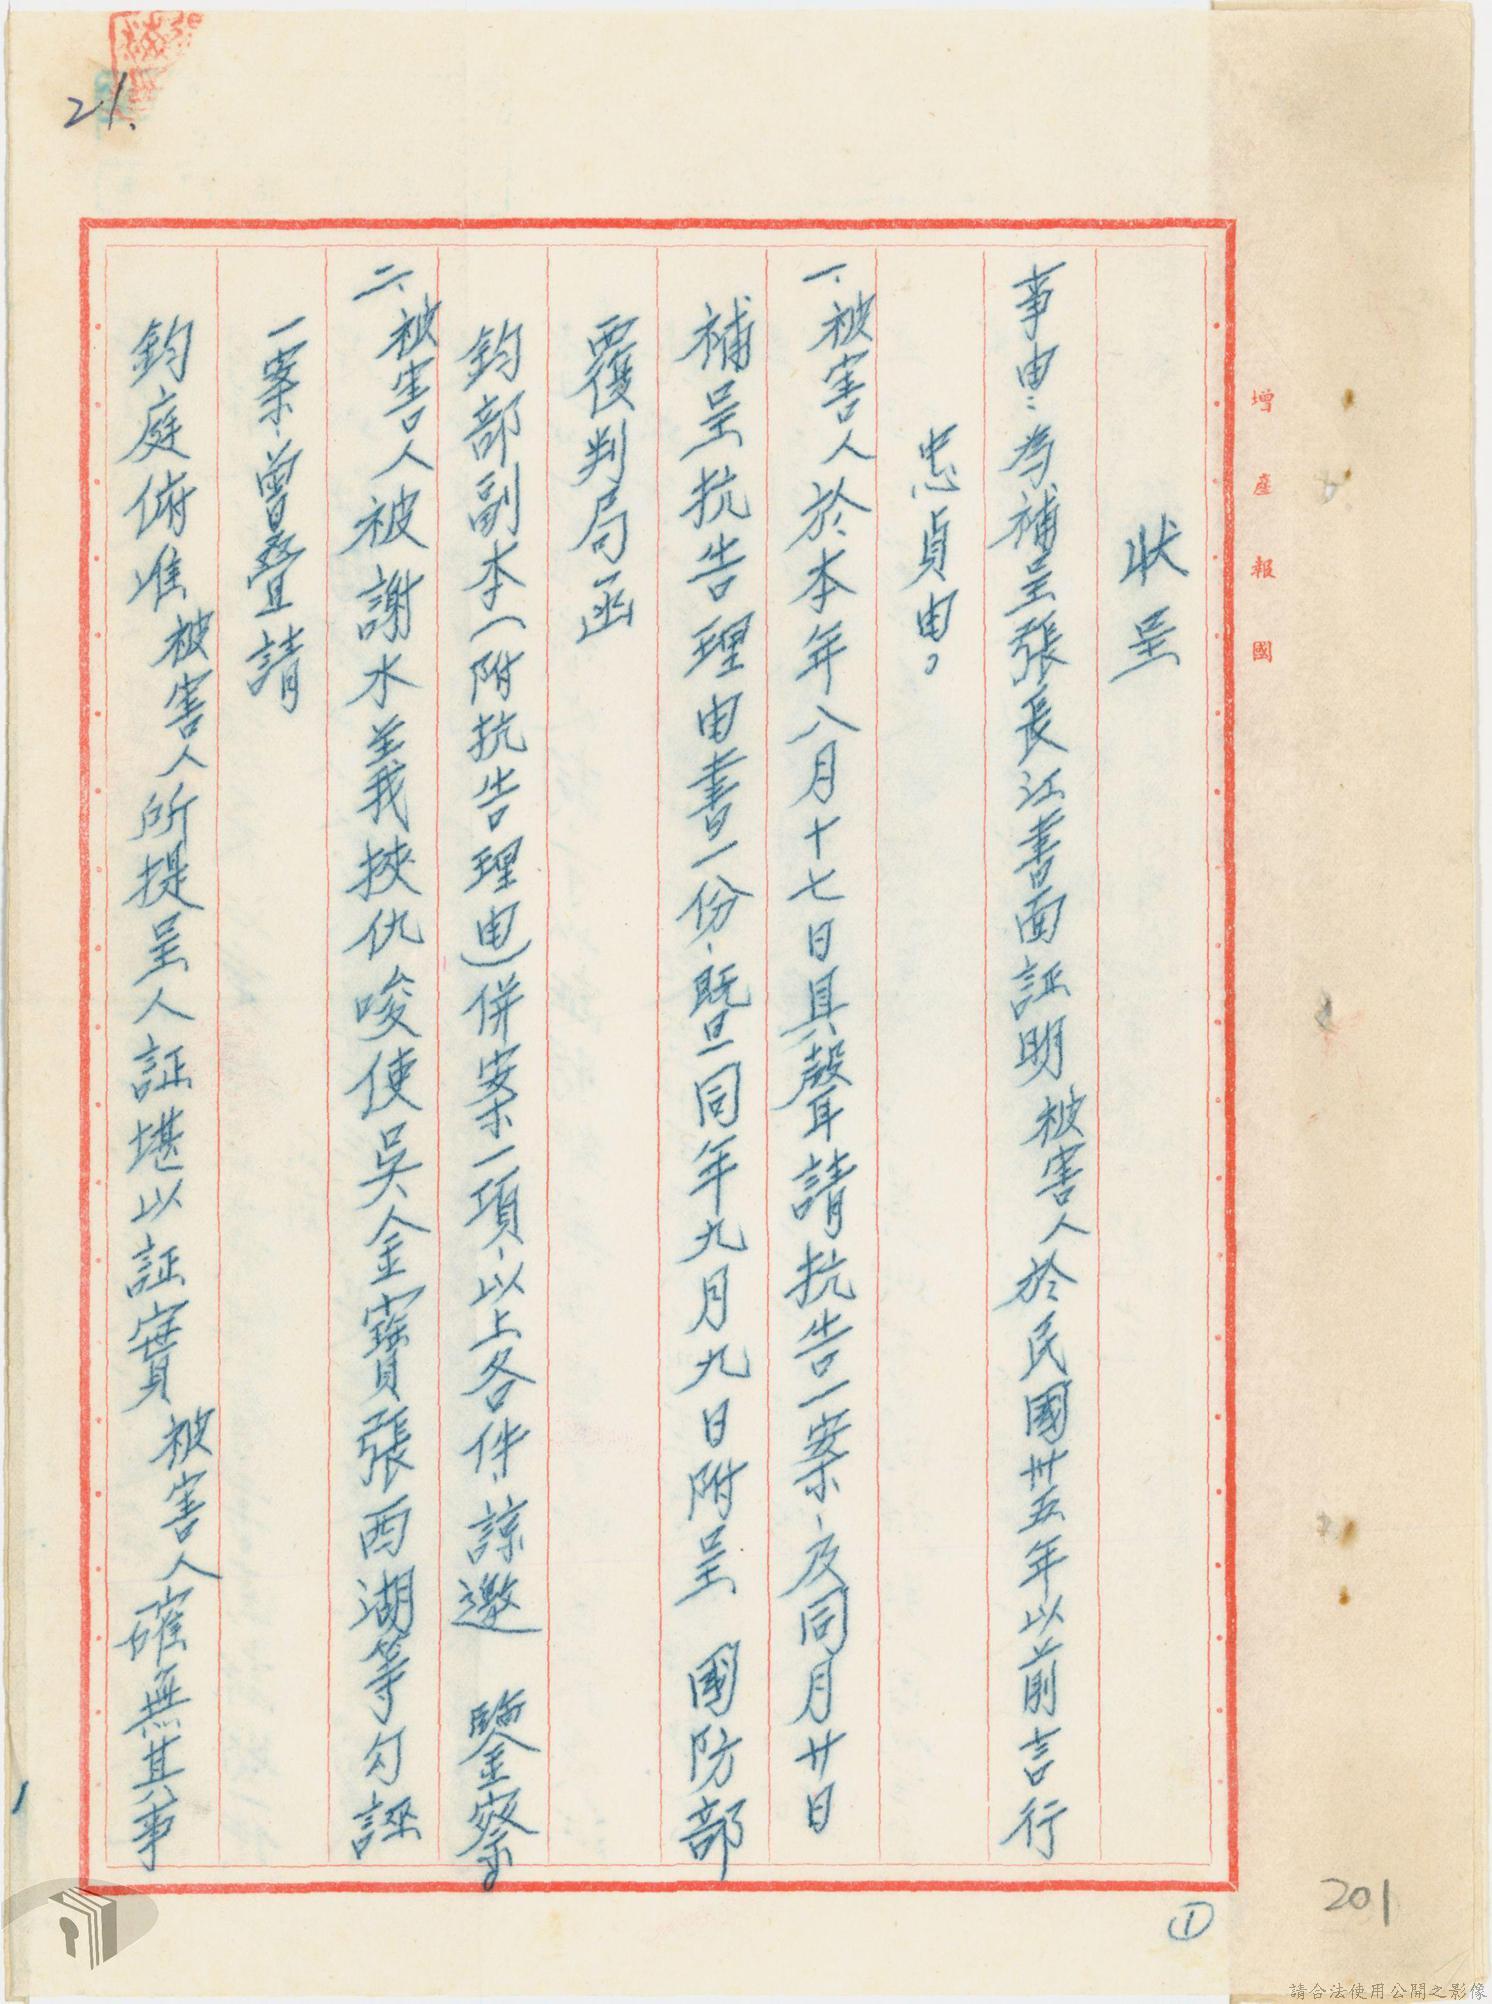 21.
增產報國
狀呈
事由：為補呈張長江書面証明被害人於民國卅五年以前言行
忠貞由。
一、被害人於本年八月十七日具聲請抗告一案、及同月廿日
補呈抗告理由書一份、暨同年九月九日附呈 國防部
覆判局函
鈞部副本（附抗告理由）併案一項、以上各件、諒邀 鑒察。
二、被害人被謝水義挾仇唆使吳金寶張西湖等勾誣
一案、曾疊請
鈞庭俯准被害人所提呈人証堪以証實被害人確無其事
①
201
請合法使用公開之影像